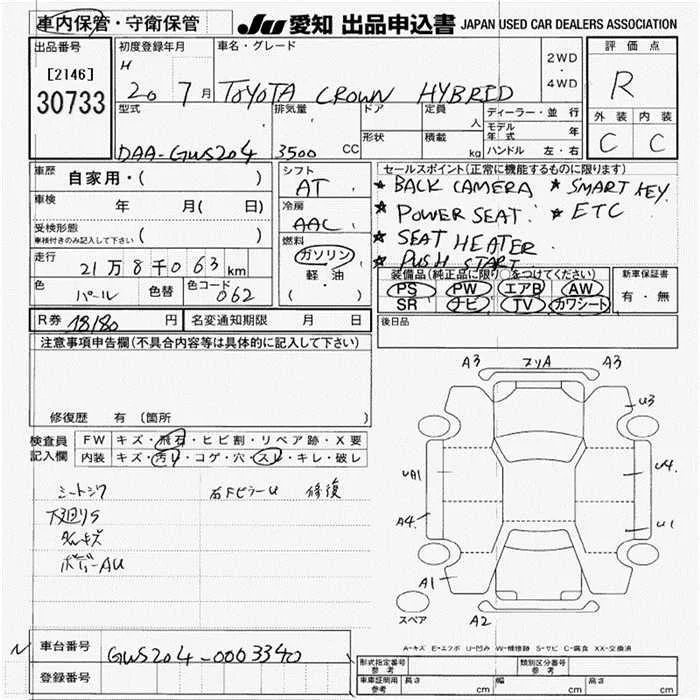 車内保管・守衛保管
JU 愛知 出品申込書 JAPAN USED CAR DEALERS ASSOCIATION
出品番号
[2146]
30733
初度登録年月
H
20 7月
車名・グレード
TOYOTA CROWN HYBRID
2WD
・
4WD
評価点
R
外装 内装
C C
型式
DAA-GWS204
排気量
3500 CC
ドア
形状
定員
人
積載
kg
ディーラー・並行
モデル年式 年
ハンドル 左・右
車歴
自家用・( )
車検 年 月( 日)
受検形態
車検付きのみ記入して下さい ( )
走行
21万8千063km
色
パール
色替
色コード
062
シフト
AT
冷房
AAC
燃料
ガソリン
軽・油
( ・ )
セールスポイント(正常に機能するものに限ります)
★ BACK CAMERA ★ SMART KEY.
★ POWER SEAT. ★ ETC
★ SEAT HEATER.
★ PUSH START
装備品(純正品に限り○をつけてください)
PS PW エアB AW
SR ナビ TV カワシート
新車保証書
有・無
R券 18180 円
名変通知期限 月 日
後日品
注意事項申告欄(不具合内容等は具体的に記入して下さい)
修復歴 有(箇所 )
検査員
記入欄
FW キズ・飛石・ヒビ割・リペア跡・X要
内装 キズ・汚レ・コゲ・穴・スレ・キレ・破レ
シートシワ
右FピラーU 修復
下廻りS
ボディーAU
A3 A3
U3
UA1
U4
A4
U1
A1
スペア
A2
A-キズ E-エクボ U-凹み W-補修跡 S-サビ C-腐食 XX-交換済
N
車台番号
GWS204-0003340
登録番号
形式指定番号
参考
類別区分番号
参考
車庫証明用
参考
長さ cm
幅 cm
高さ cm